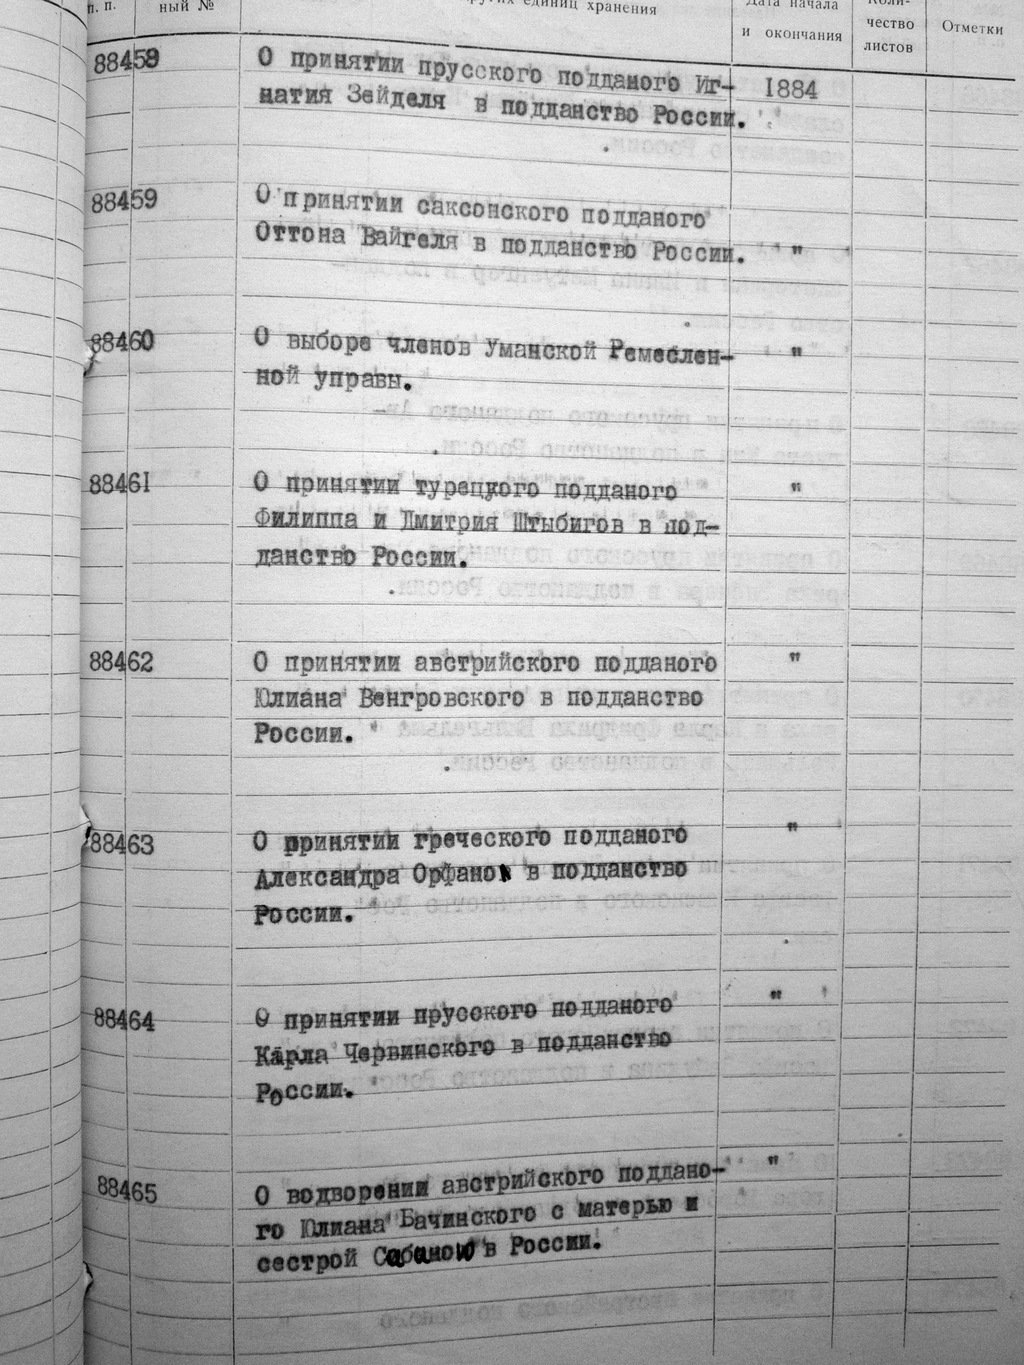 п. п.
ный №
других единиц хранения
Дата начала
и окончания
Коли-
чество
листов
Отметки
88458
О принятии прусского подданого Иг-
натия Зейделя в подданство России.
1884
88459
О принятии саксонского подданого
Оттона Вайгеля в подданство России.
"
88460
О выборе членов Уманской Ремеслен-
ной управы.
"
88461
О принятии турецкого подданого
Филиппа и Дмитрия Штыбигов в под-
данство России.
"
88462
О принятии австрийского подданого
Юлиана Венгровского в подданство
России.
"
88463
О принятии греческого подданого
Александра Орфано в подданство
России.
"
88464
О принятии прусского подданого
Карла Червинского в подданство
России.
"
88465
О водворении австрийского поддано-
го Юлиана Бачинского с матерью и
сестрой Сабиною в России.
"